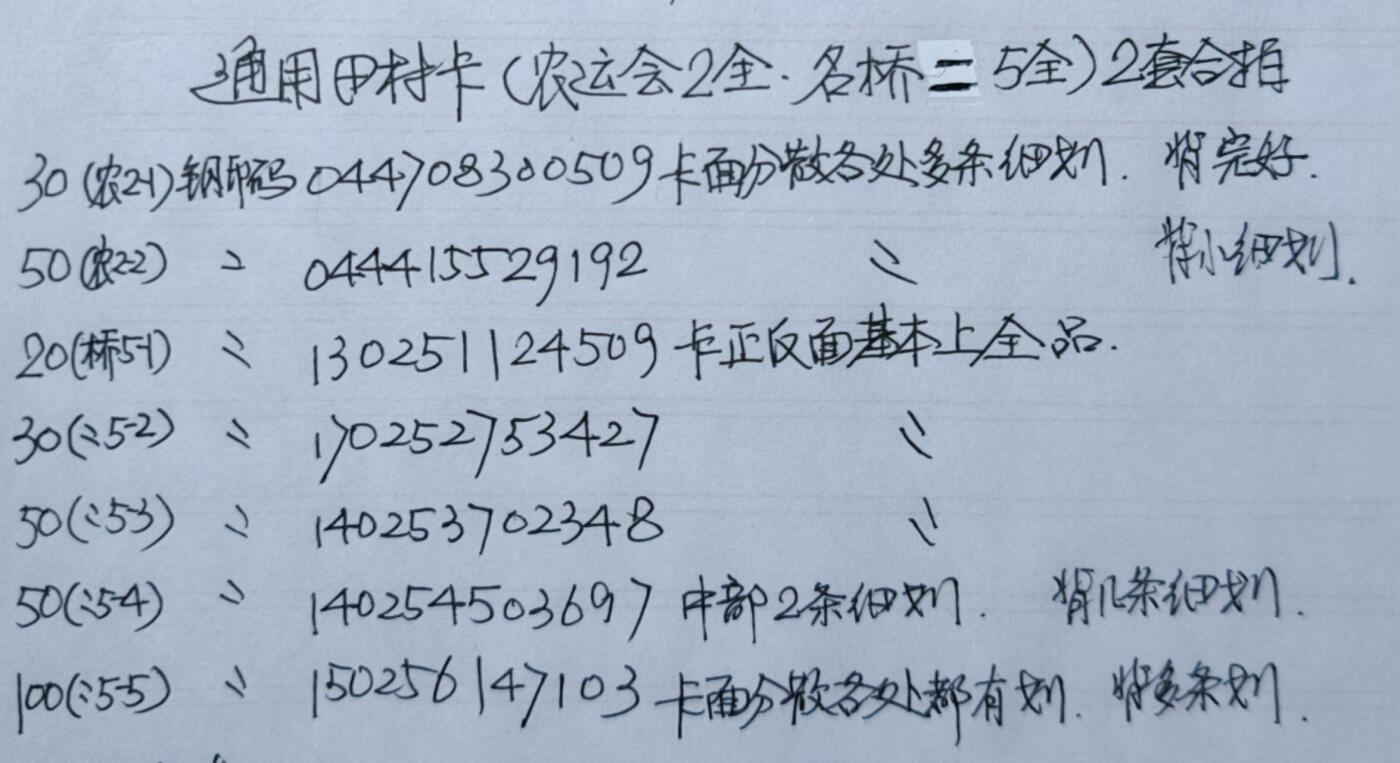 通用田村卡(农运会2全.名桥二5全)2套合拍
30(农2-1)钢印码 044708300509 卡面分散各处多条细划. 背完好.
50(农2-2) 〃 044415529192 〃 背小细划.
20(桥5-1) 〃 130251124509 卡正反面基本上全品.
30(〃5-2) 〃 170252753427 〃
50(〃5-3) 〃 140253702348 〃
50(〃5-4) 〃 140254503697 中部2条细划. 背几条细划.
100(〃5-5) 〃 150256147103 卡面分散各处都有划. 背多条划.